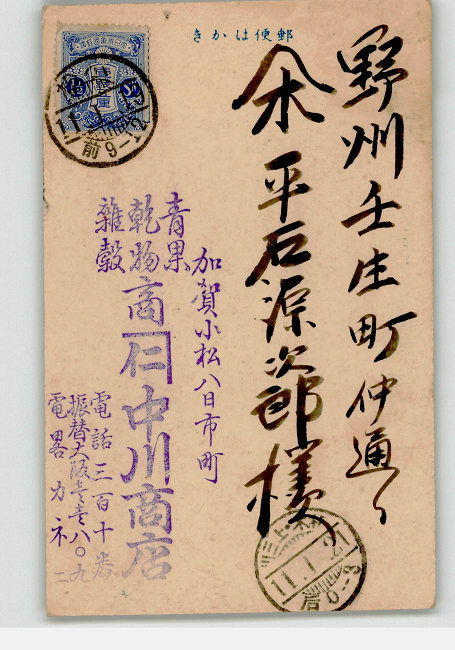 郵便はかき
野州壬生町仲通り
平石源次郎様
加賀小松八日市町
青果
乾物
雑穀
商
仁
中川商店
電話三百十番
振替大阪壱壱八〇九
電畧カネ
11.1.21
前9-12